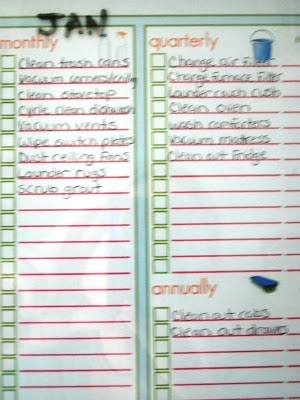 JAN
monthly
Clean trash cans
Vacuum corners/ceiling
Clean stovetop
Cycle clean dishwash
Vacuum vents
Wipe switch plates
Dust ceiling fans
Launder rugs
Scrub grout
quarterly
Change air filter
Change furnace filter
Launder couch
Clean oven
Wash comforters
Vacuum mattress
Clean out fridge
annually
Clean out cabs
Clean out drawers